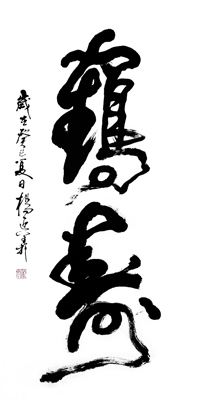 鶴壽
歲在癸巳夏日楊